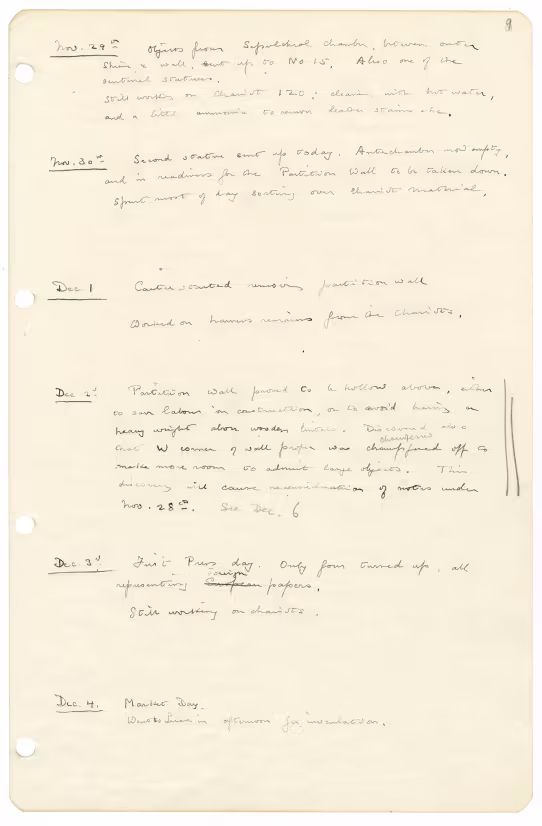 9
Nov. 29th Objects from Sepulchral chamber, between outer
shrine & wall, sent up to No 15. Also one of the
sentinel statues.
Still working on Chariot 120: cleaning with hot water,
and a little ammonia to remove leather stains etc.
Nov. 30th Second statue sent up today. Antechamber now empty,
and in readiness for the Partition Wall to be taken down.
Spent most of day sorting over chariot material.
Dec 1 Carter started removing partition wall
Worked on harness remains from the chariots.
Dec 2d Partition wall proved to be hollow above, either
to save labour in construction, or to avoid having an
heavy weight above wooden lintel. Discovered also
chamfered
that W corner of wall proper was chamfered off to
make more room to admit large objects. This
discovery will cause reconsideration of notes under
Nov. 28th. See Dec. 6
Dec. 3d First Press day. Only four turned up, all
foreign
representing European papers.
Still working on chariots.
Dec. 4. Market Day.
Went to Luxor in afternoon for inoculation.